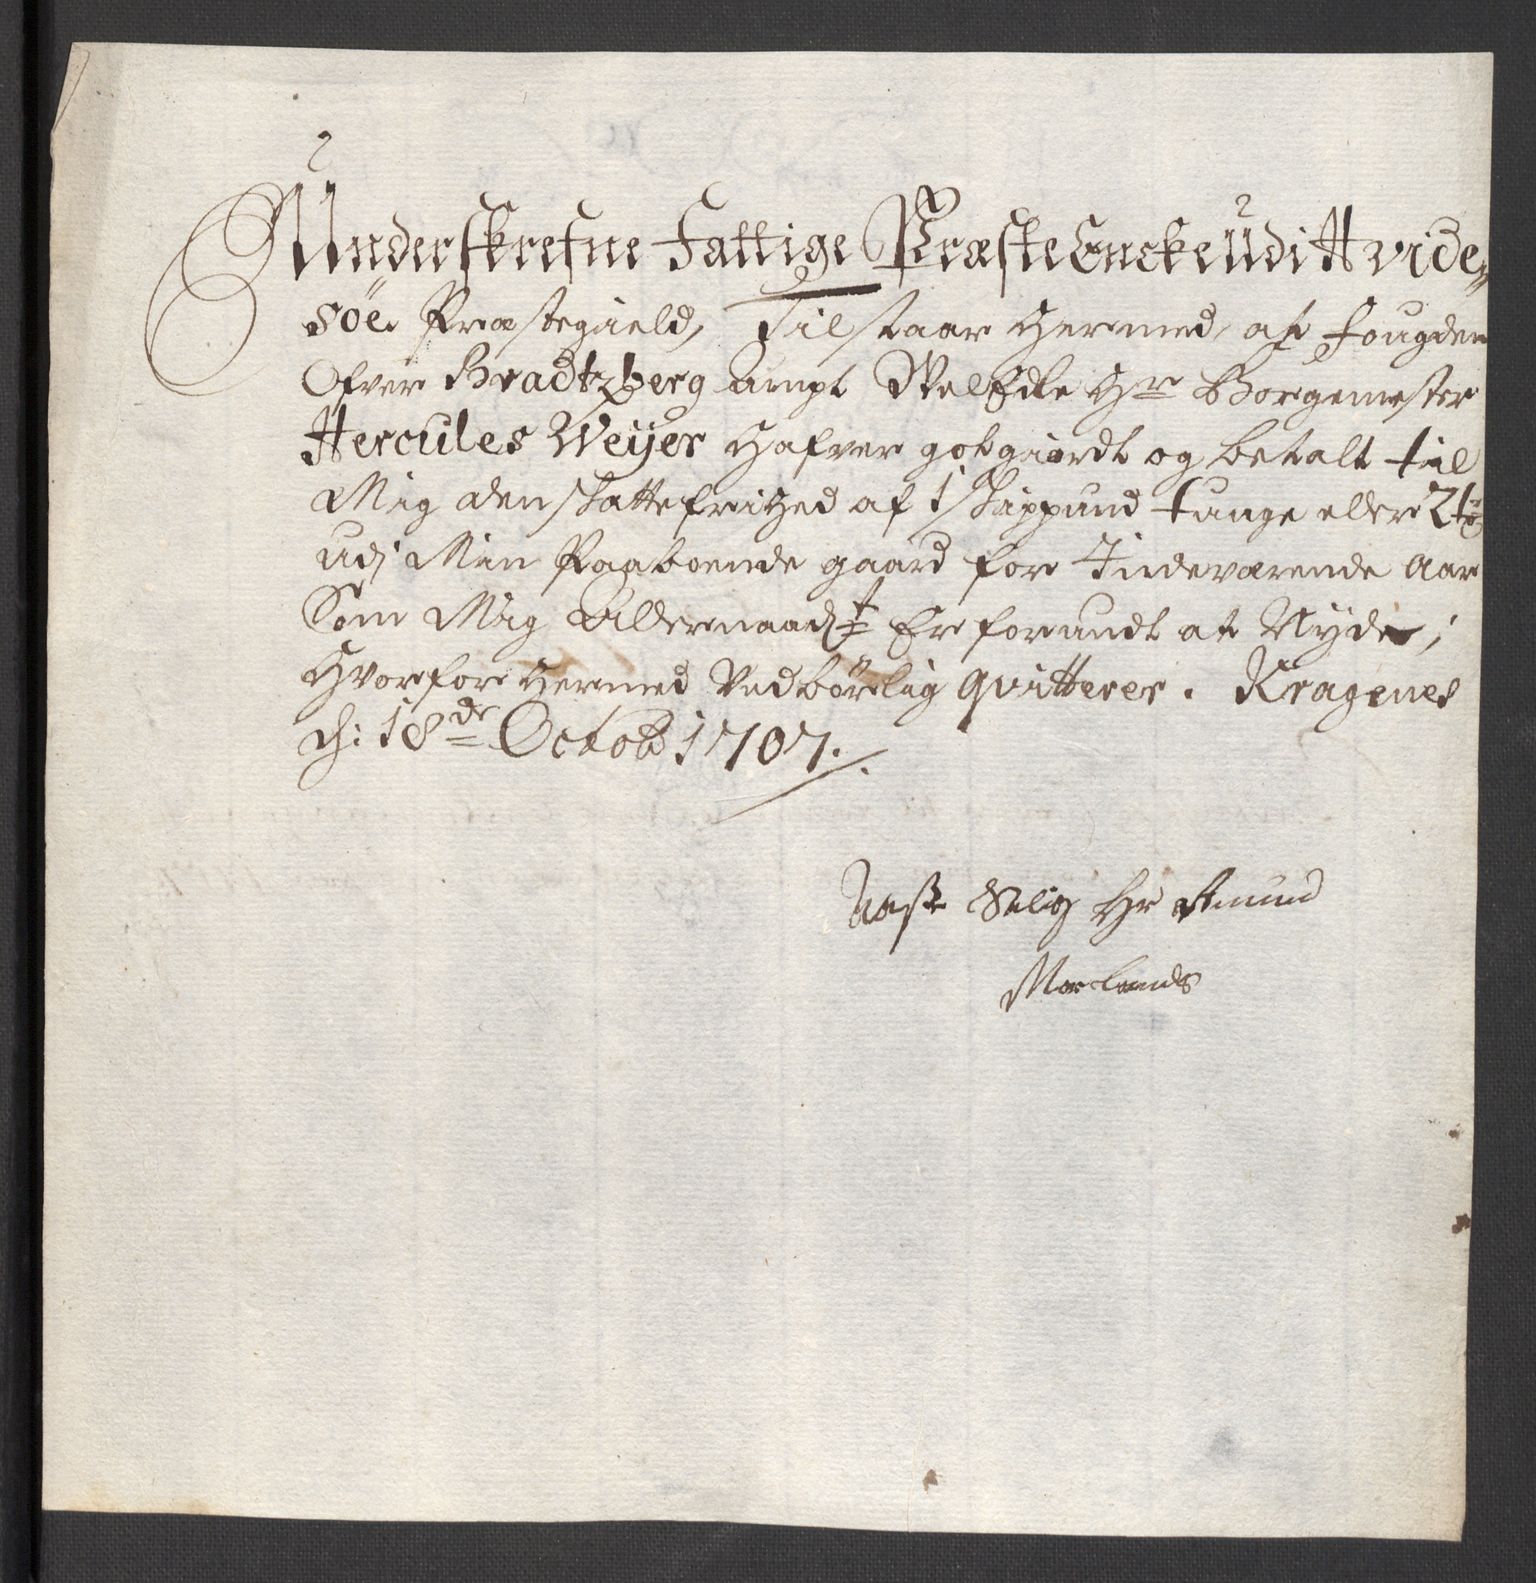 Underskrefne Fattige Præste Encke Udi Hvide,,
søe Præstegield, Tilstaar Hermed, at fougden
Ofver Bradtzberg ampt WelEdle Hr Borgemester
Hercules Weyer Hafver gotgiordt og betalt til
Mig den skatte frihed af 1 skippund tunge eller 2 tr
udj Min Paaboende gaard for Indeværende Aar
Som Mig Allernaadt Er forundt at Nyde,
Hvorfor Hermed Vedbörlig qvitterer. Kragerøe
d: 18de Octob 1707.
Salig Hr Amund
Morlands